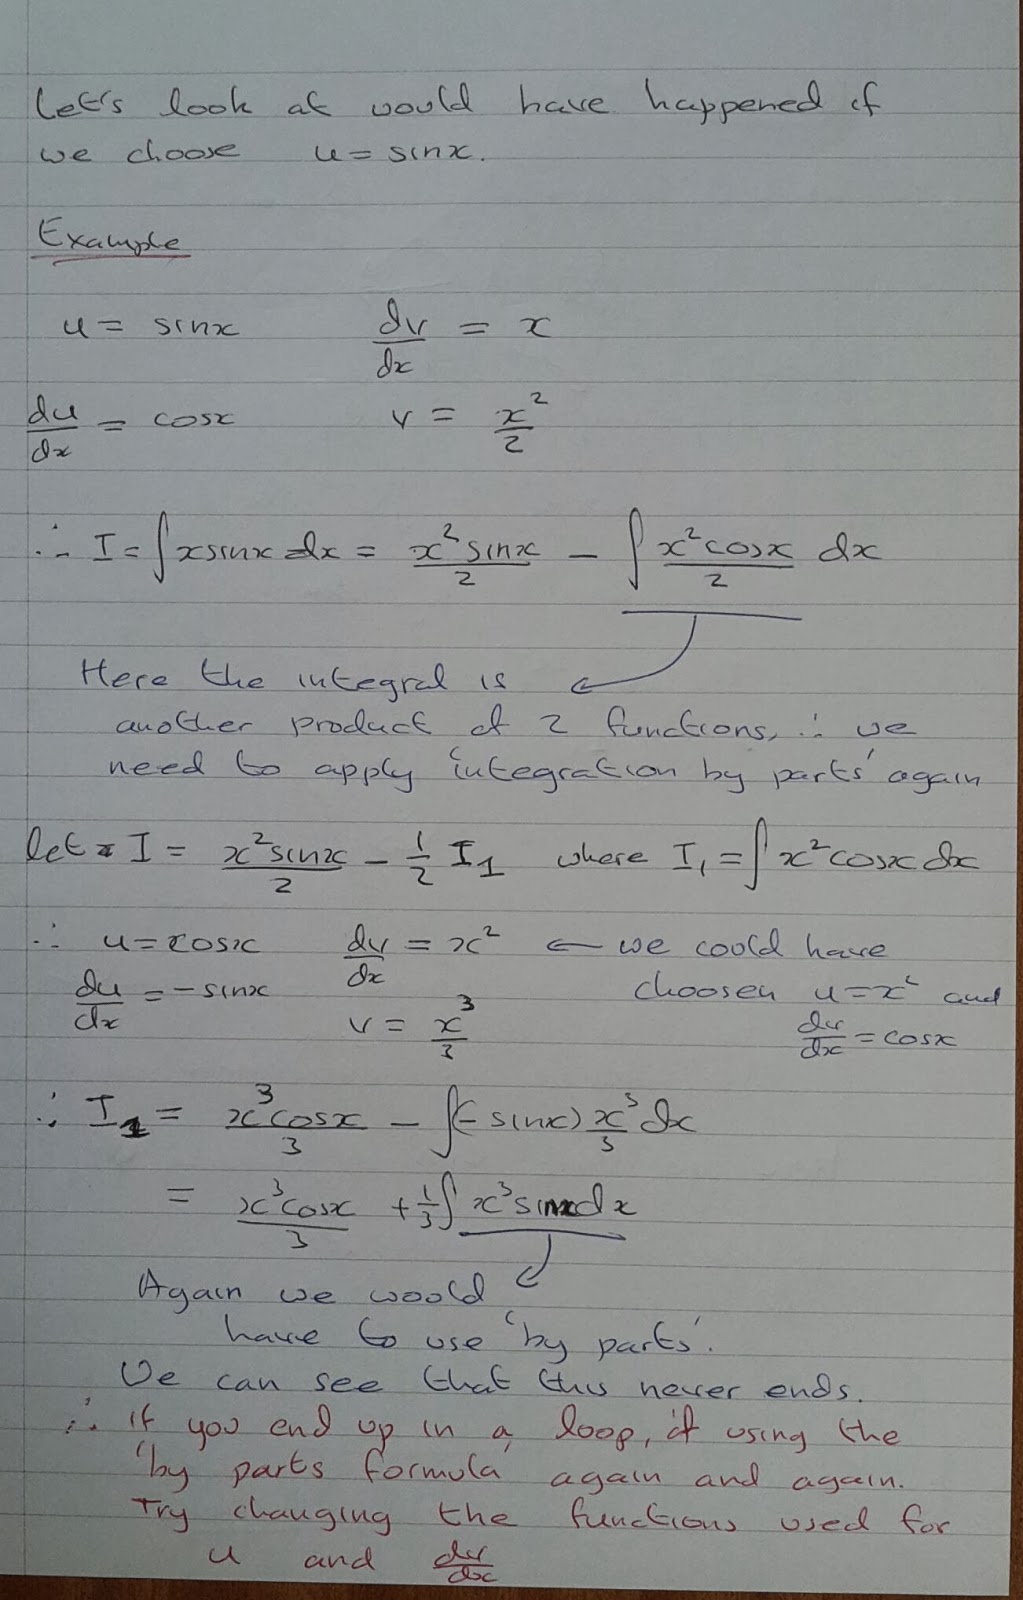 Let's look at would have happened if
we choose u = sinx.
Example
u = sinx dv/dx = x
du/dx = cosx v = x²/2
∴ I = ∫xsinx dx = x²sinx/2 − ∫x²cosx/2 dx
Here the integral is
another product of 2 functions, ∴ we
need to apply 'integration by parts' again
let I = x²sinx/2 − 1/2 I₁ where I₁ = ∫x²cosx dx
∴ u = cosx dv/dx = x² ← we could have
du/dx = −sinx v = x³/3 choosen u = x² and
dv/dx = cosx
∴ I₁ = x³cosx/3 − ∫(−sinx) x³/3 dx
= x³cosx/3 + 1/3∫x³sinxdx
Again we would
have to use 'by parts'.
We can see that this never ends.
∴ if you end up in a loop, of using the
'by parts formula again and again.
Try changing the functions used for
u and dv/dx